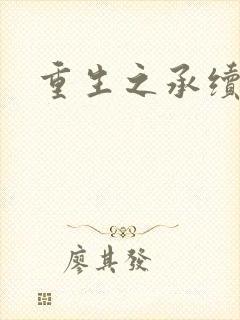 重生之承續
廖其發